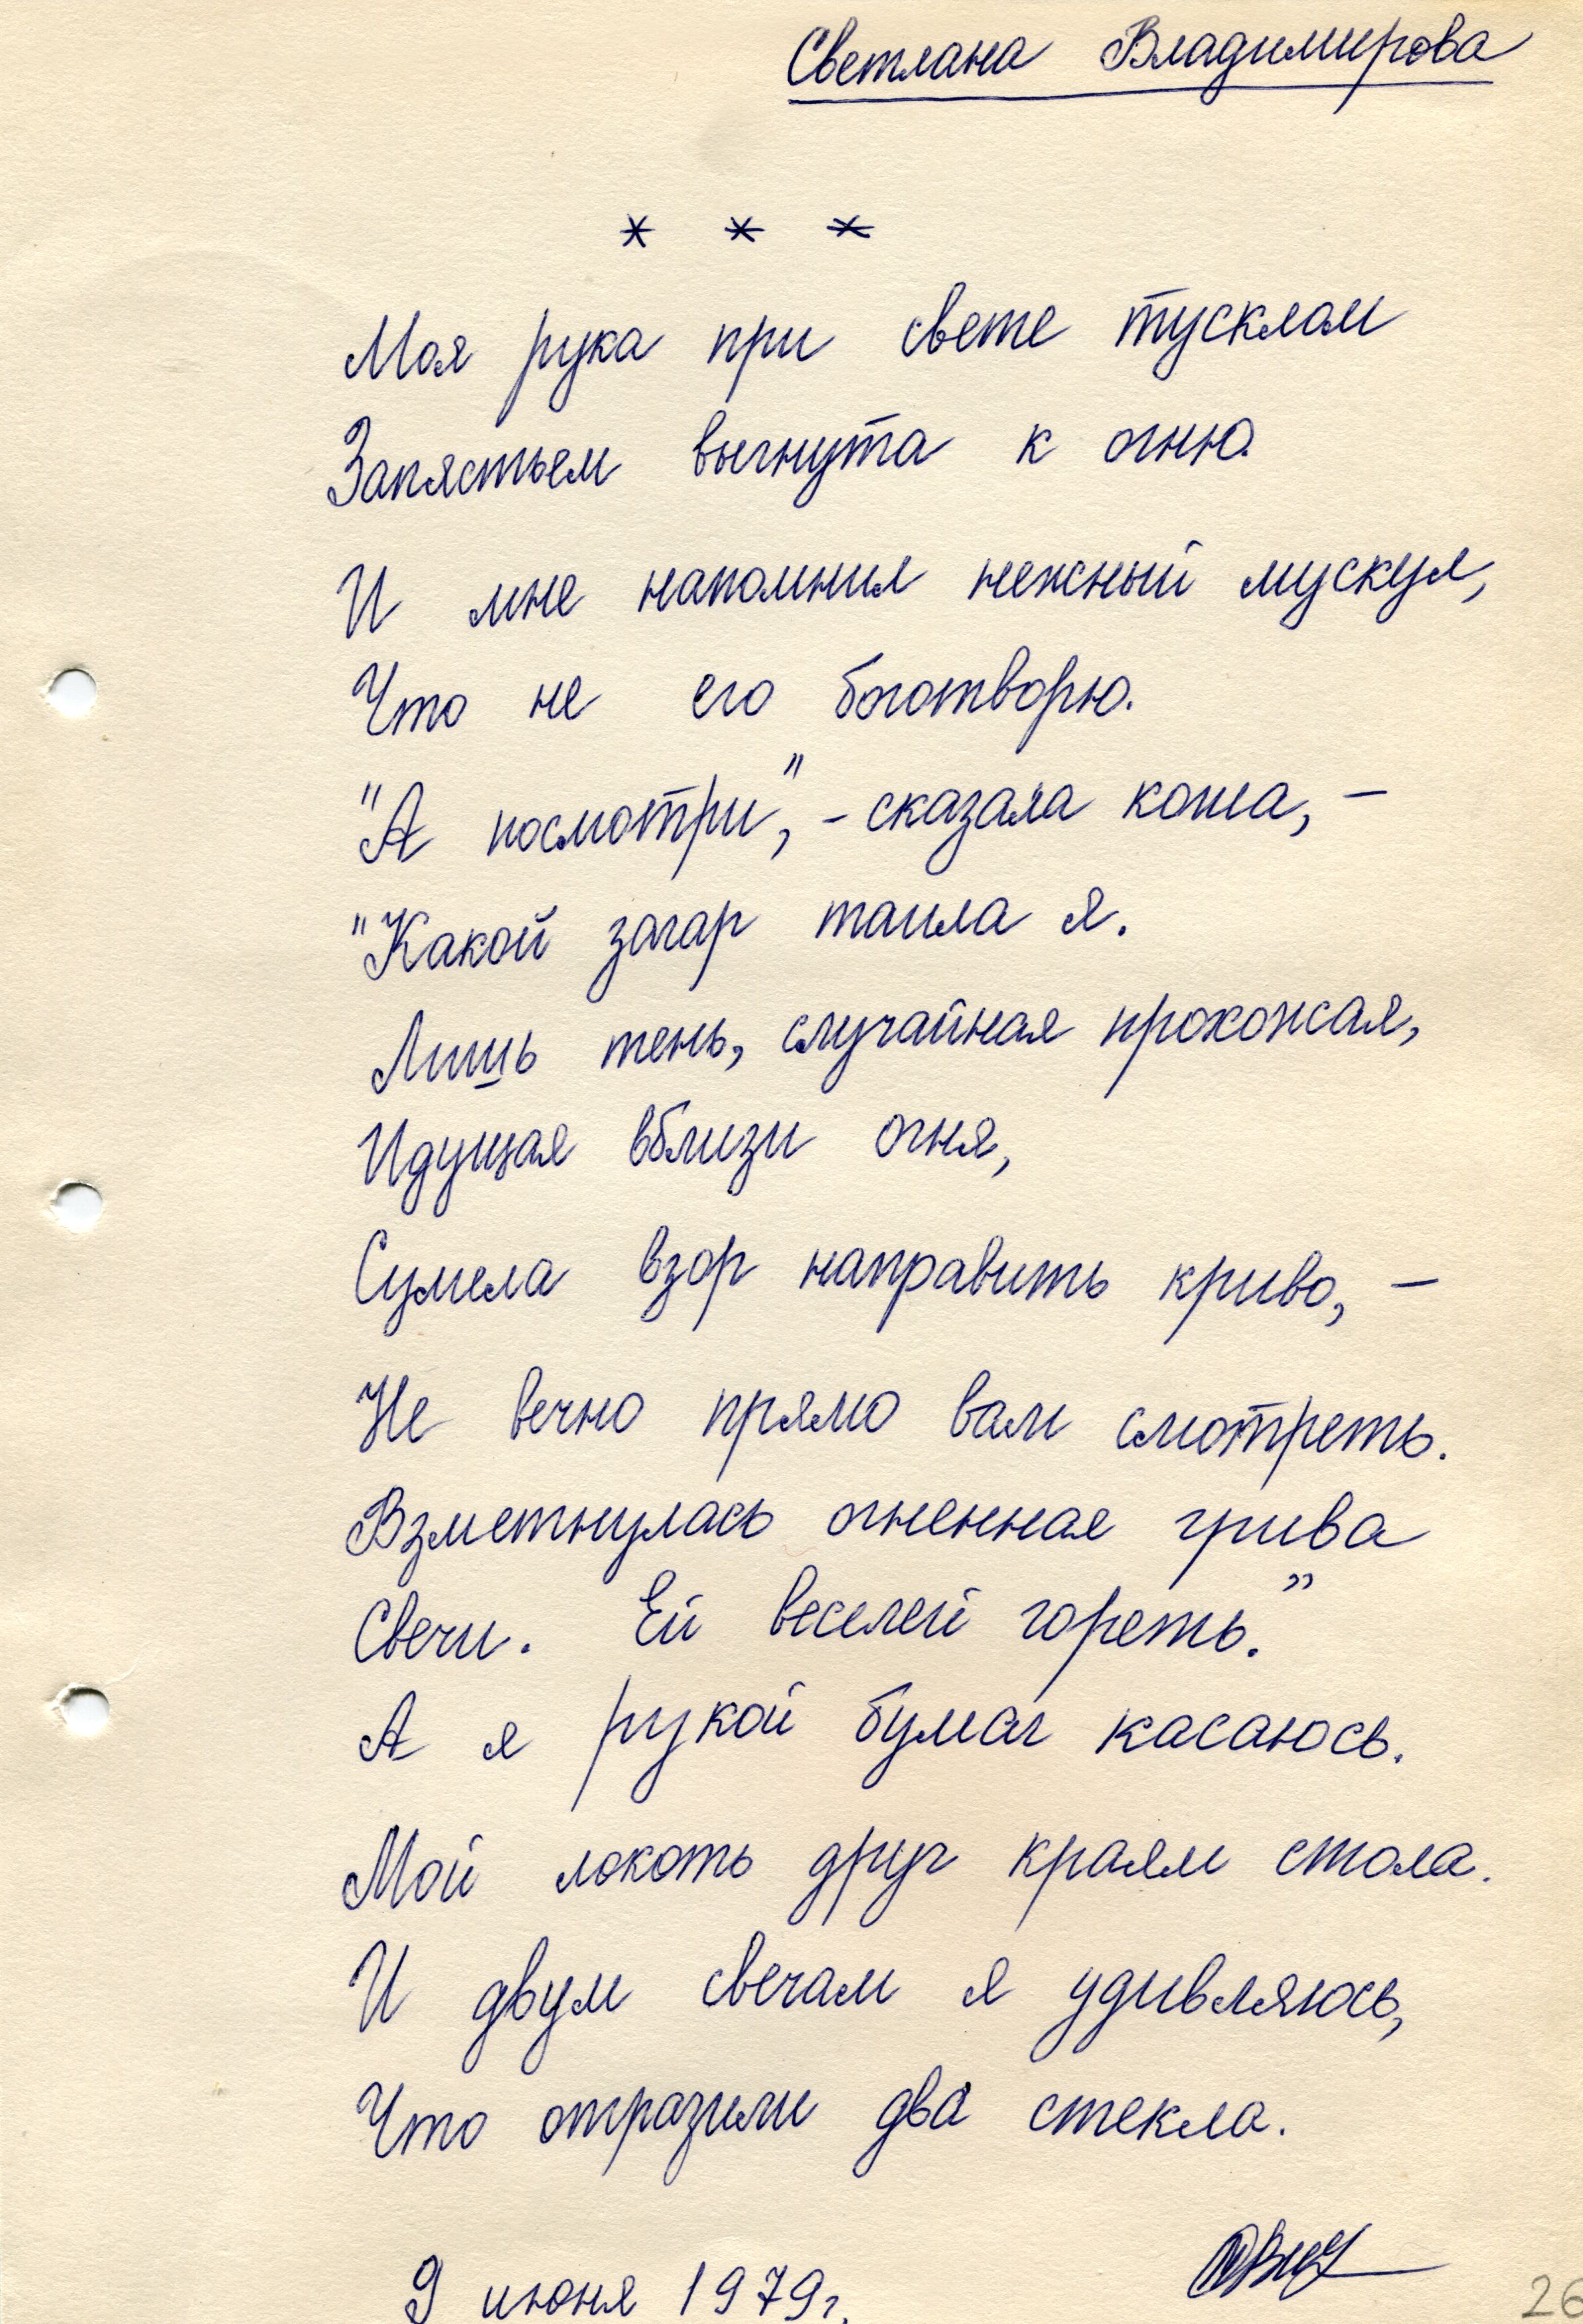 Светлана Владимирова
* * *
Моя рука при свете тусклом
Запястьем выгнута к огню.
И мне напомнил нежный мускул,
Что не его боготворю.
"А посмотри", - сказала кожа, —
"Какой загар таила я.
Лишь тень, случайная прохожая,
Идущая вблизи огня,
Сумела взор направить криво, —
Не вечно прямо вам смотреть.
Взметнулась огненная грива
Свечи. Ей веселей гореть."
А я рукой бумаг касаюсь.
Мой локоть друг краям стола.
И двум свечам я удивляюсь,
Что отразили два стекла.
9 июня 1979г.
26